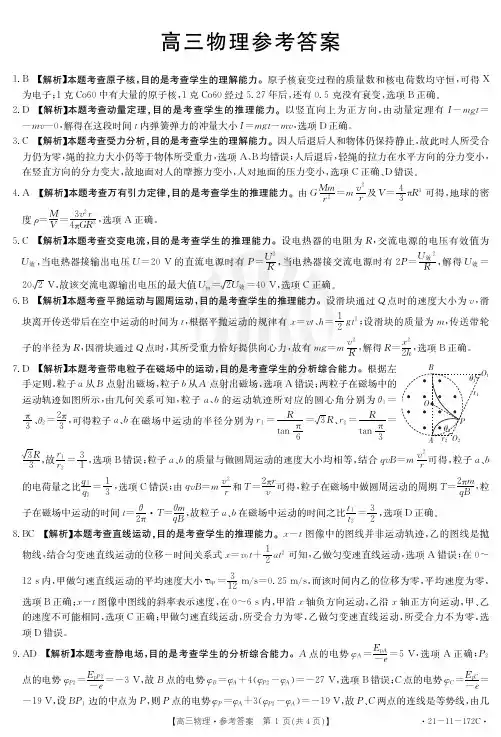 高三物理参考答案
1. B 【解析】本题考查原子核,目的是考查学生的理解能力。原子核衰变过程的质量数和核电荷数均守恒,可得 X
为电子;1 克 Co60 中有大量的原子核,1 克 Co60 经过 5.27 年后,还有 0.5 克没有衰变,选项 B 正确。
2. D 【解析】本题考查动量定理,目的是考查学生的推理能力。以竖直向上为正方向,由动量定理有 I−mgt=
−mv−0,解得在这段时间 t 内弹簧弹力的冲量大小 I=mgt−mv,选项 D 正确。
3. C 【解析】本题考查受力分析,目的是考查学生的理解能力。因人后退后人和物体仍保持静止,故此时人所受合
力仍为零,绳的拉力大小仍等于物体所受重力,选项 A、B 均错误;人后退后,轻绳的拉力在水平方向的分力变小,
在竖直方向的分力变大,故地面对人的摩擦力变小,人对地面的压力变小,选项 C 正确、D 错误。
4. A 【解析】本题考查万有引力定律,目的是考查学生的推理能力。由 G Mm/r² =m v²/r 及 V= 4/3 πR³ 可得,地球的密
度 ρ= M/V = 3v²r/4πGR³ ,选项 A 正确。
5. C 【解析】本题考查交变电流,目的是考查学生的推理能力。设电热器的电阻为 R,交流电源的电压有效值为
U效,当电热器接输出电压 U=20 V 的直流电源时有 P= U²/R ,当电热器接交流电源时有 2P= U效²/R ,解得 U效=
20√2 V,故该交流电源输出电压的最大值 Um=√2U效=40 V,选项 C 正确。
6. B 【解析】本题考查平抛运动与圆周运动,目的是考查学生的推理能力。设滑块通过 Q 点时的速度大小为 v,滑
块离开传送带后在空中运动的时间为 t,根据平抛运动的规律有 x=vt、h= 1/2 gt²;设滑块的质量为 m,传送带轮
子的半径为 R,因滑块通过 Q 点时,其所受重力恰好提供向心力,故有 mg=m v²/R ,解得 R= x²/2h ,选项 B 正确。
7. D 【解析】本题考查带电粒子在磁场中的运动,目的是考查学生的分析综合能力。根据左
手定则,粒子 a 从 B 点射出磁场,粒子 b 从 A 点射出磁场,选项 A 错误;两粒子在磁场中的
运动轨迹如图所示,由几何关系可知,粒子 a、b 的运动轨迹所对应的圆心角分别为 θ₁=
π/3 、θ₂= 2π/3 ,可得粒子 a、b 在磁场中运动的半径分别为 r₁= R/tan π/6 =√3R、r₂= R/tan π/3 =
√3R/3 ,故 r₁/r₂ = 3/1 ,选项 B 错误;粒子 a、b 的质量与做圆周运动的速度大小均相等,结合 qvB=m v²/r 可得,粒子 a、b
的电荷量之比 q₁/q₂ = 1/3 ,选项 C 错误;由 qvB=m v²/r 和 T= 2πr/v 可得,粒子在磁场中做圆周运动的周期 T= 2πm/qB ,粒
子在磁场中运动的时间 t= θ/2π · T= θm/qB ,故粒子 a、b 在磁场中运动的时间之比 t₁/t₂ = 3/2 ,选项 D 正确。
B
O₁
θ₁
r₁
O
P
θ₂
A
r₂
O₂
8. BC 【解析】本题考查直线运动,目的是考查学生的推理能力。x−t 图像中的图线并非运动轨迹,乙的图线是抛
物线,结合匀变速直线运动的位移−时间关系式 x=v₀t+ 1/2 at² 可知,乙做匀变速直线运动,选项 A 错误;在 0~
12 s 内,甲做匀速直线运动的平均速度大小 v甲= 3/12 m/s=0.25 m/s,而该时间内乙的位移为零,平均速度为零,
选项 B 正确;x−t 图像中图线的斜率表示速度,在 0~6 s 内,甲沿 x 轴负方向运动,乙沿 x 轴正方向运动,甲、乙
的速度不可能相同,选项 C 正确;甲做匀速直线运动,所受合力为零,乙做匀变速直线运动,所受合力不为零,选
项 D 错误。
9. AD 【解析】本题考查静电场,目的是考查学生的分析综合能力。A 点的电势 φA= EpA/−e =5 V,选项 A 正确;P₂
点的电势 φP2= EpP2/−e =−3 V,故 B 点的电势 φB=φA+4(φP2−φA)=−27 V,选项 B 错误;C 点的电势 φC= EpC/−e =
−19 V,设 BP₁ 边的中点为 P,则 P 点的电势 φP=φA+3(φP2−φA)=−19 V,故 P、C 两点的连线是等势线,由几
【高三物理·参考答案 第 1 页(共 4 页)】
·21−11−172C·